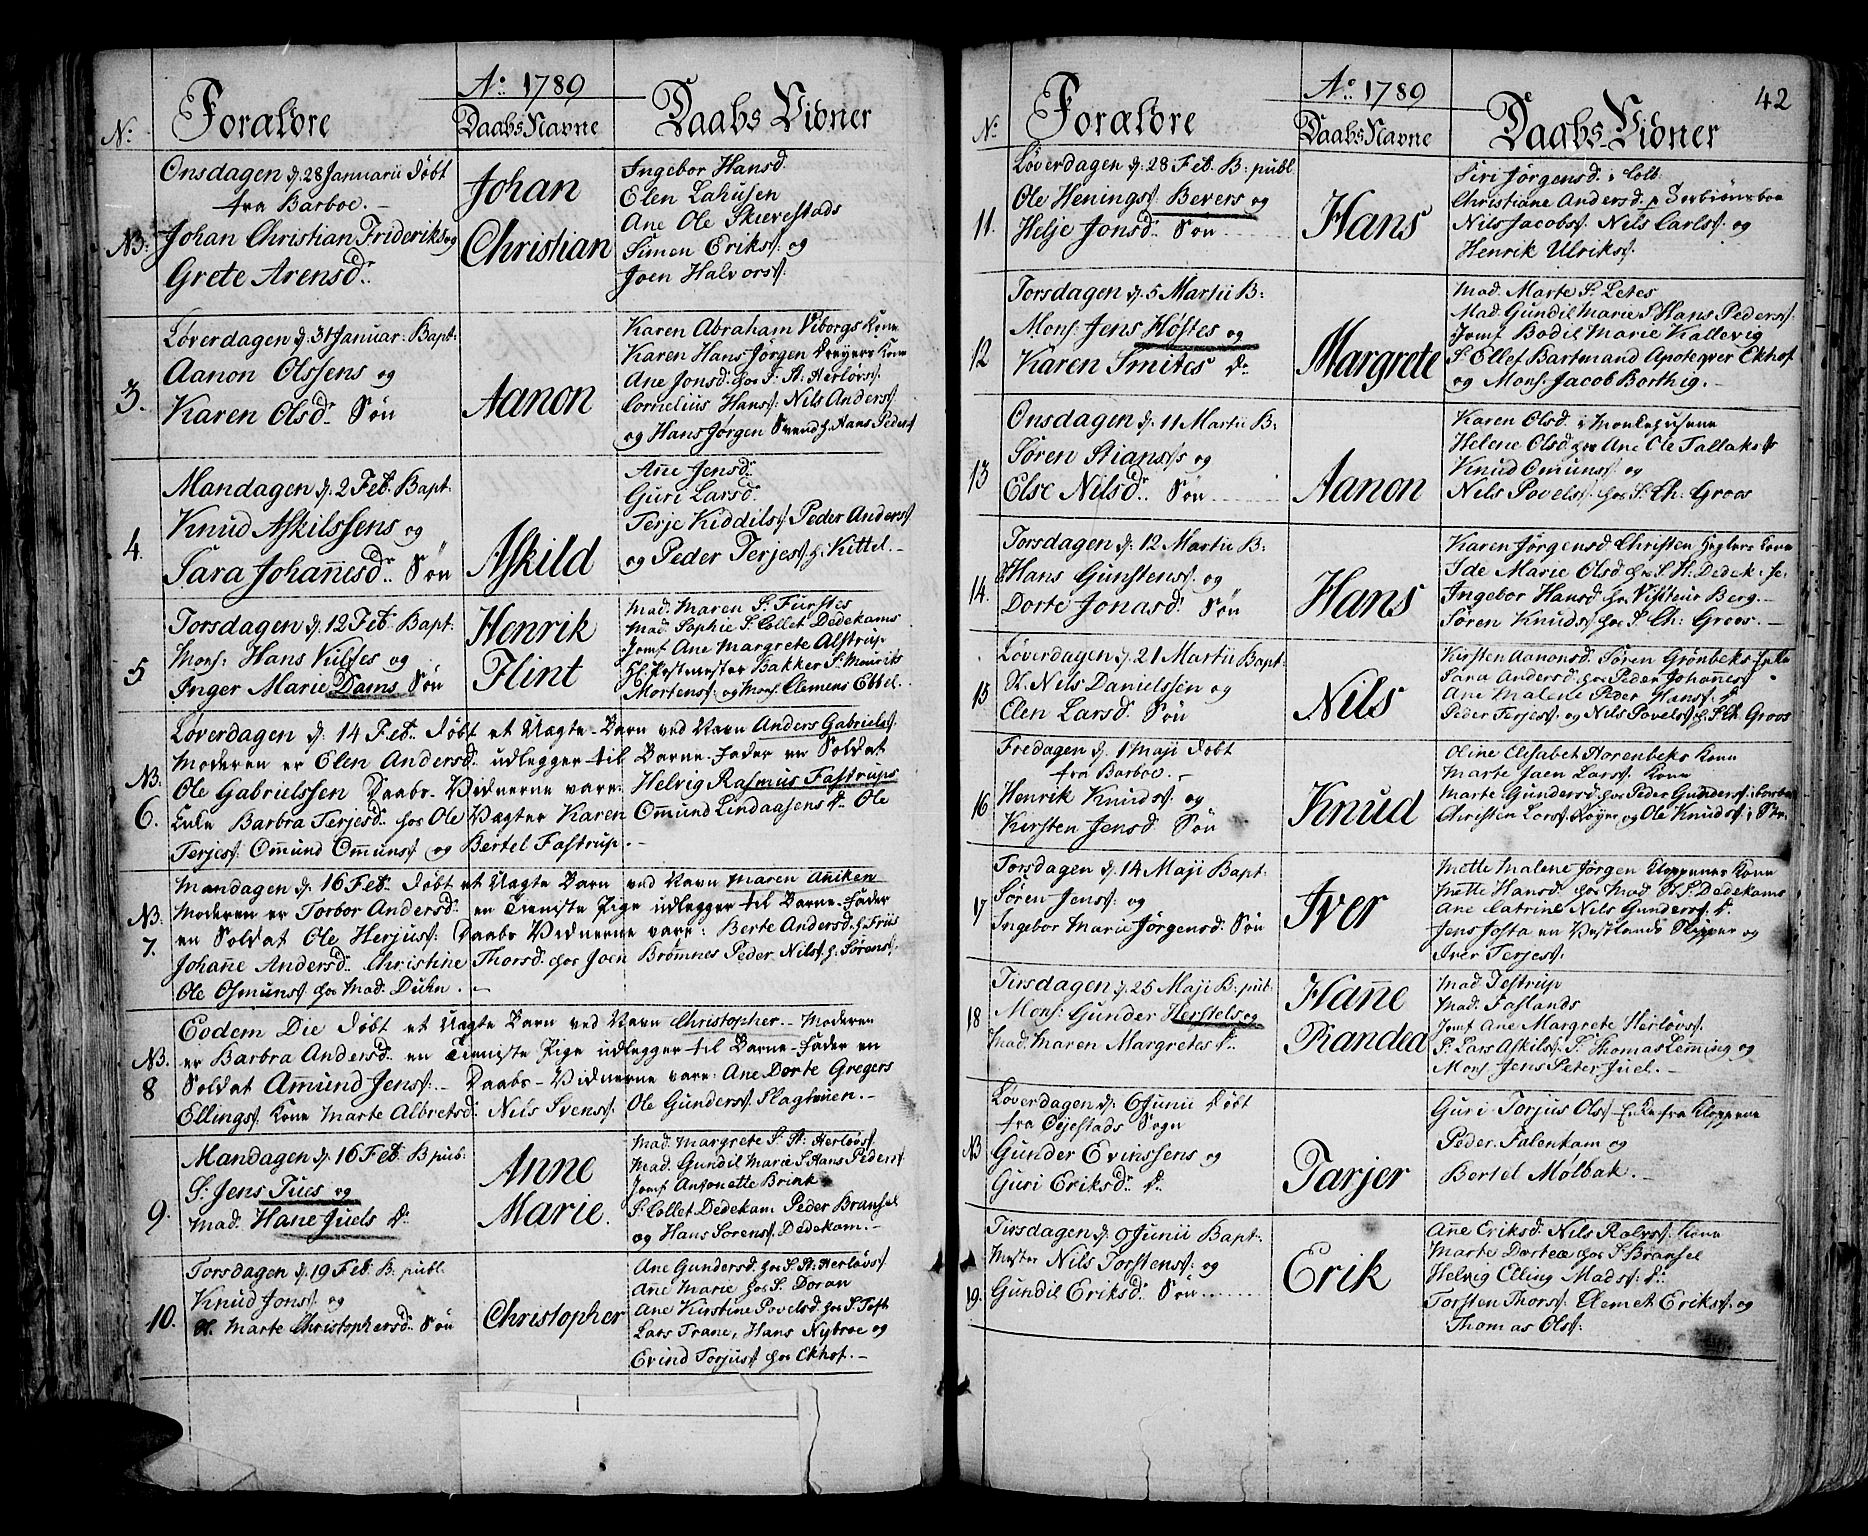 Aº 1789
Nº Forældre Daabs Navne Daabs Vidner
Onsdagen d. 28 Januarii døbt
fra Barboe.
NB: Johan Christian Frideriks og
Grete Arensd:
Johan
Christian
Ingebor Hansd:
Elen Lahusen
Ane Ole Skierestads
Simen Erikss: og
Joen Halvorss:
3. Løverdagen d. 31 Januar: Bapt:
Aanon Olssens og
Karen Olsd: Søn
Aanon
Karen Abraham Viborgs Kone
Karen Hans Jørgen Dreyers Kone
Ane Jonsd: hos S. St: Herløvs:
Cornelius Hanss: Nils Anderss:
og Hans Jørgen Svend h. Hans Peders:
4. Mandagen d. 2 Feb. Bapt:
Knud Askilssens og
Sara Johañesd: Søn
Askild
Añe Jensd:
Guri Larsd:
Terje Kiddilss: Peder Anderss:
og Peder Terjess: h. Kittel.
5 Torsdagen d. 12 Feb. Bapt:
Mons: Hans Vulfses og
Inger Marie Dams Søn
Henrik
Flint
Mad. Maren S. Furstes
Mad. Sophie S. Collet Dedekams
Jomf Ane Margrete Alstrup
H: Postmester Bakker S. Mourits
Mortens: og Mons: Clemens Ebbel.
NB: 6. Løverdagen d. 14 Feb. døbt et Uægte Barn ved Navn Anders Gabrielss:
Moderen er Elen Andersd: udlegger til Barne-Fader en Soldat
Ole Gabrielssen Daabs-Vidnerne vare: Helvig Rasmus Fastrups
Enke Barbra Terjesd: hos Ole Vægter Karen Om̄und Lindaasens D. Ole
Terjess: Om̄und Om̄unss: og Bertel Fastrup.
NB: 7. Mandagen d. 16 Feb. døbt et Uægte Barn ved Navn Maren Aniken
Moderen er Torbor Andersd: en Tieniste Pige udlegger til Barne-Fader
en Soldat Ole Herjuss: Daabs Vidnerne vare: Berte Andersd. h. Friis
Johañe Andersd: Christine Thorsd. hos Joen Brom̄nes Peder Nilss: h. Sørenss:
Ole Osmunss: hos Mad. Duhn.
NB: 8 Eodem Die døbt et Uægte Barn ved Navn Christopher. Moderen
er Barbra Andersd: en Tieniste Pige udlegger til Barne-Fader en
Soldat Am̄und Jenss: Daabs-Vidnerne vare: Ane Dorte Gregers
Ellingss: Kone Marte Albretsd: Nils Svenss: Ole Gunderss: Slagtøien.
9. Mandagen d. 16 Feb. B pub:
S: Jens Tues og
Mad. Hane Juels D:
Anne
Marie.
Mad. Margrete S. St: Herløvs:
Mad. Gundil Marie S Hans Pederss:
Jomf Antonette Brink
S. Collet Dedekam Peder Bransel
og Hans Sørenss: Dedekam.
10. Torsdagen d. 19 Feb. B. publ.
Knud Jonss: og
Marte Christophersd: Søn
Christopher
Ane Gundersd: hos S. St: Herløvs:
Añe Marie hos S. Doran
Ane Kirstine Povelsd: hos S. Toft
Lars Trane, Hans Nybroe og
Evind Torjuss: hos Ekhof.
42
Aº 1789
Nº Forældre Daabs Navne Daabs-Vidner
11. Løverdagen d. 28 Feb. B: publ
Ole Henings: Bevers og
Helje Jonsd: Søn
Hans
Siri Jørgensd: i Colb:
Christiane Andersd.
Nils Jacobss: Nils Carlss: og
Henrik Ulrikss:
12 Torsdagen d. 5 Martii B:
Mons: Jens Høstes og
Karen Smites D:
Margrete
Mad. Marte S. Letes
Mad Gundil Marie S Hans Pederss:
Jomf Bodil Marie Kallevig
S. Ellef Bartmand Apoteqver Ekhof
og Mons: Jacob Borthig.
13 Onsdagen d. 11 Martii B:
Søren Stianss: og
Else Nilsd: Søn
Aanon
Karen Olsd: i
Helene Olsd: hos Ane Ole Tallaks:
Knud Omunss: og
Nils Povelss: hos S. Ch: Groos
14. Torsdagen d: 12 Martii B:
Hans Gunstenss: og
Dorte Jonasd: Søn
Hans
Karen Jørgensd: Christen Kone
Ide Marie Olsd: hos S. H: Dedek:
Ingebor Hansd: hos Visiteur Berg.
Søren Knudss: hos S. Ch: Groos.
15 Løverdagen d. 21 Martii Bapt:
Nils Danielssen og
Elen Larsd: Søn
Nils
Kirsten Aanonsd: Søren Grønbeks Enke
Sara Andersd: hos Peder Johañess:
Ane Malene Peder Hanss: D:
Peder Terjess: og Nils Povelss: h: S. Ch: Groos
16 Fredagen d. 1 Maji døbt
fra Barboe.
Henrik Knudss: og
Kirsten Jensd: Søn
Knud
Oline Elisabet Horenbeks Kone
Marte Jaen Larss: Kone
Marte Gundersd: hos Peder Gunderss:
Christen Larss: og Ole Knudss:
17 Torsdagen d. 14 Maji Bapt:
Søren Jenss: og
Ingebor Marie Jørgensd: Søn
Iver
Mette Malene Jørgen Kloppenes Kone
Mette Hansd: hos Mad St. S. Dedekams
Ane Catrine Nils Gunderss: D.
Jens Josta en Vestlands Skipper og
Iver Terjess:
18 Tirsdagen d. 25 Maji B: pub:
Mons: Gunder Herstels og
Mad. Maren Margretes D:
Hañe
Randea
Mad Testrup
Mad. Faslands
Jomf Ane Margrete Herløvs:
S. Lars Askilss: S. Thomas Lem̄ing og
Mons: Jens Peter Juel.
NB Løverdagen d. 6 Junii døbt
fra Øjestads Sogn
Gunder Evinssens og
Guri Eriksd: D:
Tarjer
Guri Torjus Olss: Enke fra Kloppene
Peder Falenkam og
Bertel Molbak.
19. Tirsdagen d. 9 Junii Bapt:
Mester Nils Torstenss: og
Gundil Eriksd: Søn
Erik
Añe Eriksd: Nils Rolvss: Kone
Marte Dortea hos S. Bransel
Helvig Elling Madss: D:
Torsten Thorss: Clemet Erikss: og
Thomas Olss: